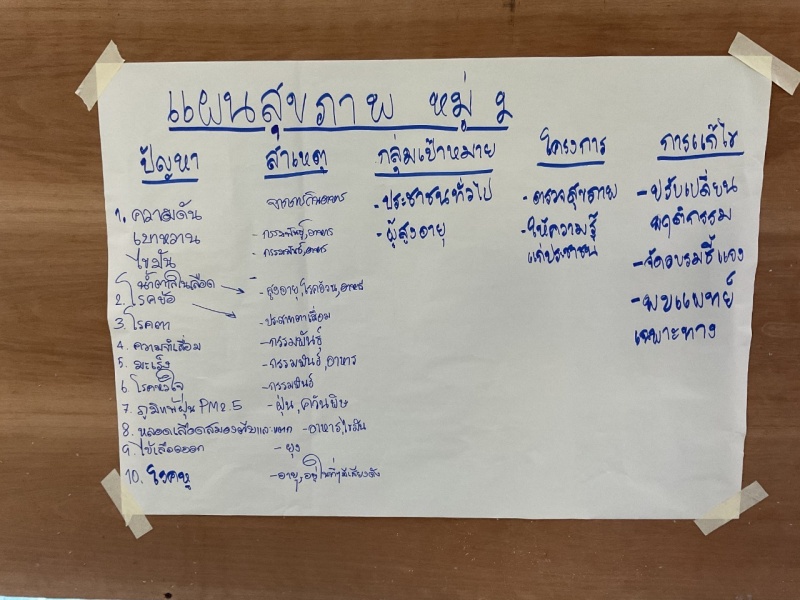 แผนสุขภาพ หมู่ 2
ปัญหา
1. ความดัน
เบาหวาน
ไขมัน
น้ำตาลในเลือด
2. โรคข้อ
3. โรคตา
4. ความจำเสื่อม
5. มะเร็ง
6. โรคหัวใจ
7. ภูมิแพ้ฝุ่น PM 2.5
8. หลอดเลือดสมองตีบและแตก
9. ไข้เลือดออก
10. โรคหู
สาเหตุ
- กรรมพันธุ์, อาหาร
- กรรมพันธุ์, อาหาร
-
- สูงอายุ, โรคอ้วน, อาหาร
- ประสาทตาเสื่อม
- กรรมพันธุ์
- กรรมพันธ์, อาหาร
- กรรมพันธ์
- ฝุ่น, ควันพิษ
- อาหาร, ไขมัน
- ยุง
- อายุ, อยู่ในที่ๆมีเสียงดัง
กลุ่มเป้าหมาย
- ประชาชนทั่วไป
- ผู้สูงอายุ
โครงการ
- ตรวจสุขภาพ
- ให้ความรู้
แก่ประชาชน
การแก้ไข
- ปรับเปลี่ยน
พฤติกรรม
- จัดอบรมชี้แจง
- พบแพทย์
เฉพาะทาง